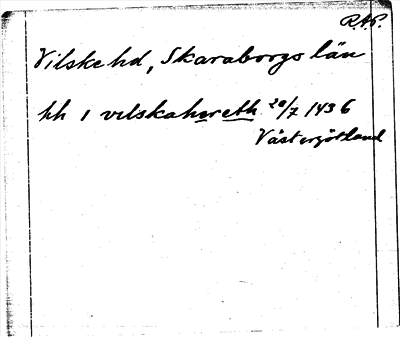 R.A.P.
Vilske hd, Skaraborgs län
hh i vilskahereth 20/7 1436
Västergötland